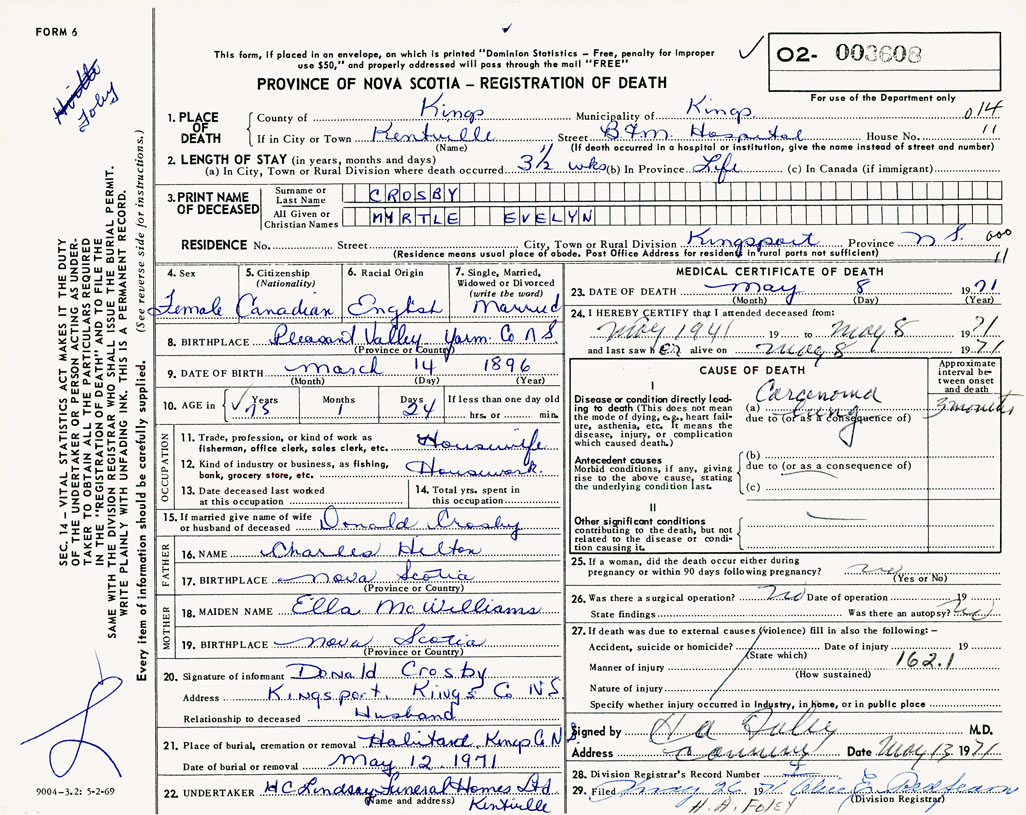 FORM 6
This form, if placed in an envelope, on which is printed "Dominion Statistics – Free, penalty for improper
use $50," and properly addressed will pass through the mail "FREE"
02- 003608
PROVINCE OF NOVA SCOTIA – REGISTRATION OF DEATH
For use of the Department only
Foley
1. PLACE OF DEATH
County of Kings Municipality of Kings 014
If in City or Town Kentville Street B.F.M. Hospital House No. 11
(Name) (If death occurred in a hospital or institution, give the name instead of street and number)
2. LENGTH OF STAY (in years, months and days)
(a) In City, Town or Rural Division where death occurred 3½ wks (b) In Province Life (c) In Canada (if immigrant)
3. PRINT NAME OF DECEASED
Surname or Last Name CROSBY
All Given or Christian Names MYRTLE EVELYN
RESIDENCE No. Street City, Town or Rural Division Kingsport Province N S. 000
(Residence means usual place of abode. Post Office Address for residents in rural parts not sufficient) 11
4. Sex
Female
5. Citizenship
(Nationality)
Canadian
6. Racial Origin
English
7. Single, Married,
Widowed or Divorced
(write the word)
Married
8. BIRTHPLACE Pleasant Valley Yarm. Co N S
(Province or Country)
9. DATE OF BIRTH March 14 1896
(Month) (Day) (Year)
10. AGE in Years 75 Months 1 Days 24 If less than one day old
hrs. or min.
OCCUPATION
11. Trade, profession, or kind of work as
fisherman, office clerk, sales clerk, etc. Housewife
12. Kind of industry or business, as fishing,
bank, grocery store, etc. Housework.
13. Date deceased last worked
at this occupation
14. Total yrs. spent in
this occupation
15. If married give name of wife
or husband of deceased Donald Crosby
FATHER
16. NAME Charles Hilton
17. BIRTHPLACE Nova Scotia
(Province or Country)
MOTHER
18. MAIDEN NAME Ella McWilliams
19. BIRTHPLACE Nova Scotia
(Province or Country)
20. Signature of informant Donald Crosby
Address Kingsport, Kings Co NS.
Relationship to deceased Husband
21. Place of burial, cremation or removal Habitant, Kings Co N S
Date of burial or removal May 12, 1971
22. UNDERTAKER H C Lindsay Funeral Homes Ltd
(Name and address) Kentville
MEDICAL CERTIFICATE OF DEATH
23. DATE OF DEATH May 8 1971
(Month) (Day) (Year)
24. I HEREBY CERTIFY that I attended deceased from:
May 1941 19 to May 8 1971
and last saw her alive on May 8 1971
CAUSE OF DEATH
Approximate
interval be-
tween onset
and death
I
Disease or condition directly lead-
ing to death (This does not mean
the mode of dying, e.g., heart fail-
ure, asthenia, etc. It means the
disease, injury, or complication
which caused death.)
(a) Carcenoma
lung
due to (or as a consequence of)
3 months
Antecedent causes
Morbid conditions, if any, giving
rise to the above cause, stating
the underlying condition last.
(b)
due to (or as a consequence of)
(c)
II
Other significant conditions
contributing to the death, but not
related to the disease or condi-
tion causing it.
25. If a woman, did the death occur either during
pregnancy or within 90 days following pregnancy? no
(Yes or No)
26. Was there a surgical operation? no Date of operation 19
State findings Was there an autopsy? no
27. If death was due to external causes (violence) fill in also the following: –
Accident, suicide or homicide? Date of injury 19
(State which)
162.1
Manner of injury
(How sustained)
Nature of injury
Specify whether injury occurred in industry, in home, or in public place
Signed by H A Foley M.D.
Address Canning Date May 13 1971
28. Division Registrar's Record Number
29. Filed May 26 1971
(Division Registrar)
H. A. FOLEY
SEC. 14 – VITAL STATISTICS ACT MAKES IT THE DUTY
OF THE UNDERTAKER OR PERSON ACTING AS UNDER-
TAKER TO OBTAIN ALL THE PARTICULARS REQUIRED
IN THE "REGISTRATION OF DEATH" AND TO FILE THE
SAME WITH THE DIVISION REGISTRAR WHO SHALL ISSUE THE BURIAL PERMIT.
WRITE PLAINLY WITH UNFADING INK. THIS IS A PERMANENT RECORD.
Every item of information should be carefully supplied. (See reverse side for instructions.)
9004-3.2: 5-2-69